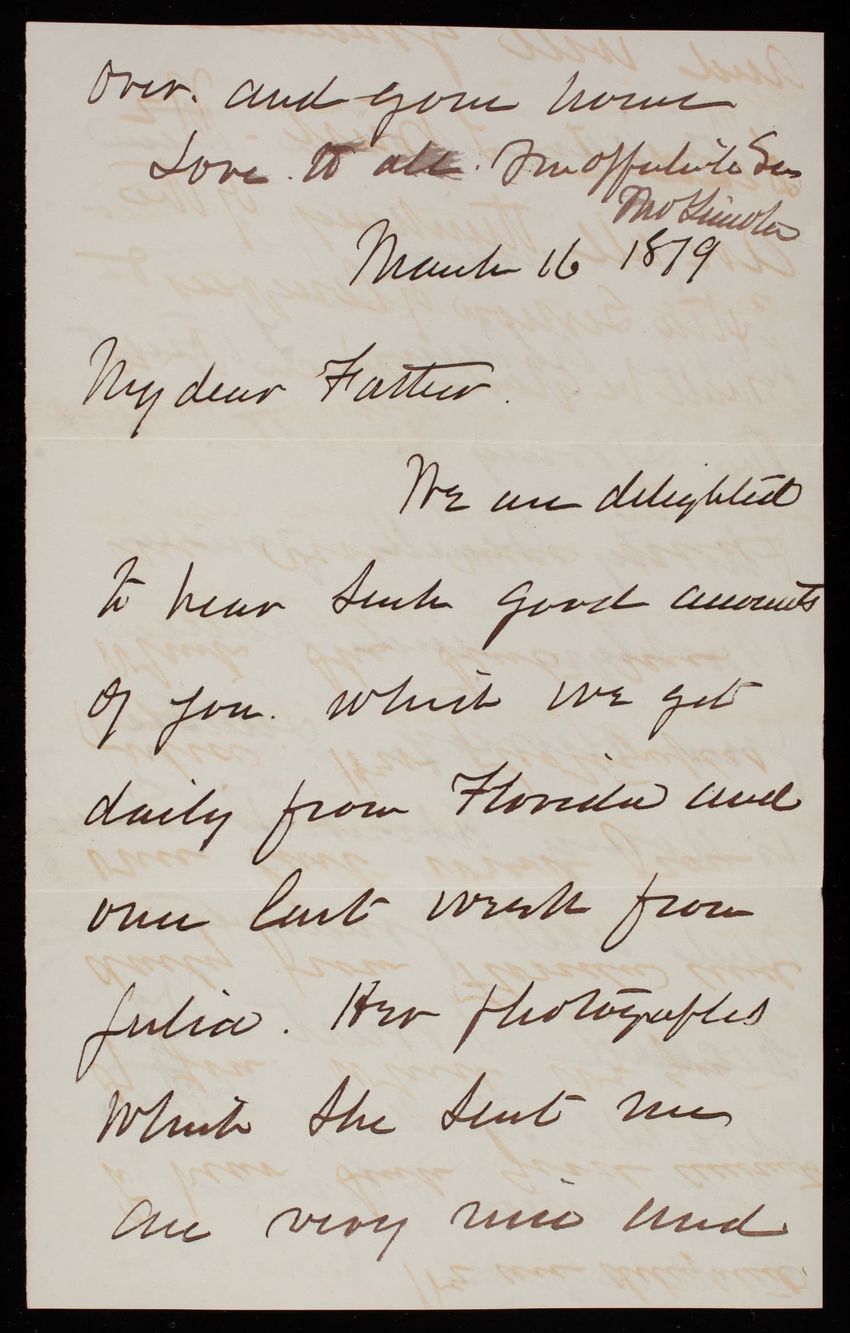 over. and gone home
Love. to all. Your affectionate Son
Tho Lincoln
March 16 1879
My dear Father.
We are delighted
to hear such good accounts
of you. which we get
daily from Florida and
once last week from
Julia. Her photographs
which she sent me
are very nice and